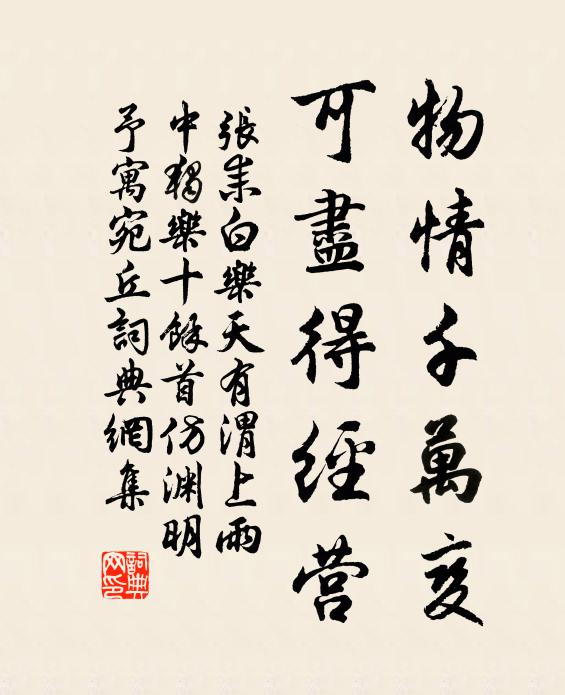 物情千萬变
可盡得經营
張耒白樂天有渭上雨
中獨樂十餘首仿渊明
予寓宛丘詞典網集
詞典
网印